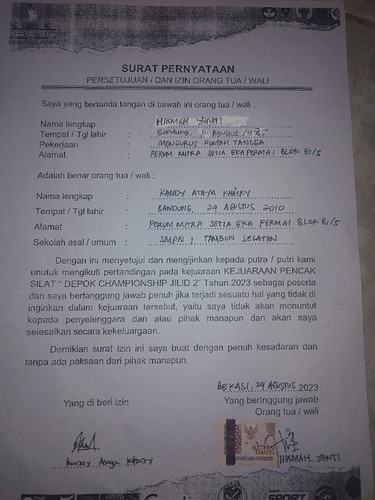 SURAT PERNYATAAN
PERSETUJUAN / DAN IZIN ORANG TUA / WALI
Saya yang bertanda tangan di bawah ini orang tua / wali :
Nama lengkap : HIKMAH JANTI
Tempat / Tgl lahir : Bandung, AGUSTUS
Pekerjaan : MENGURUS RUMAH TANGGA
Alamat : PERUM MITRA SETIA EKA PERMAI BLOK B1/5
Adalah benar orang tua / wali :
Nama lengkap : KANDY ATAYA KHAIRY
Tempat / Tgl lahir : BANDUNG, 29 AGUSTUS 2010
Alamat : PERUM MITRA SETIA EKA PERMAI BLOK B1/5
Sekolah asal / umum : SMPN 1 TAMBUN SELATAN
Dengan ini menyetujui dan mengijinkan kepada putra / putri kami
unutuk mengikuti pertandingan pada kejuaraan KEJUARAAN PENCAK
SILAT " DEPOK CHAMPIONSHIP JILID 2" Tahun 2023 sebagai peserta
dan saya bertanggung jawab penuh jika terjadi sesuatu hal yang tidak di
inginkan dalam kejuaraan tersebut, yaitu saya tidak akan menuntut
kepada penyelenggara dan atau pihak manapun dan akan saya
selesaikan secara kekeluargaan.
Demikian surat izin ini saya buat dengan penuh kesadaran dan
tanpa ada paksaan dari pihak manapun.
BEKASI, 29 AGUSTUS 2023
Yang di beri izin
Yang beringgung jawab
Orang tua / wali
Kandy Ataya Khairy
HIKMAH JANTI